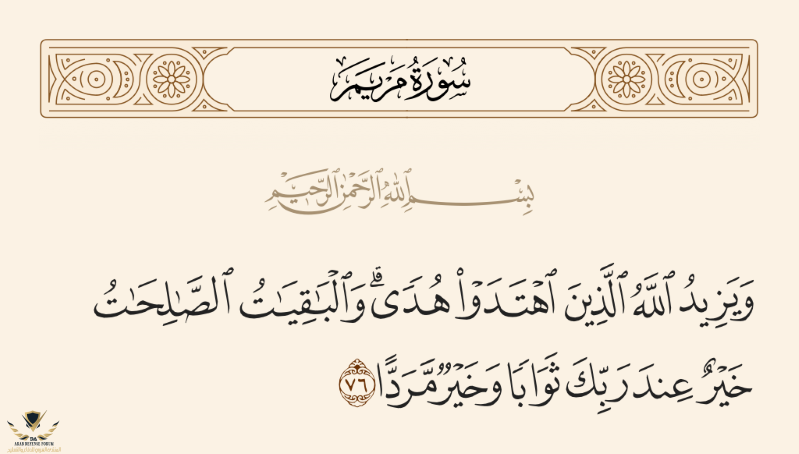 سُورَةُ مَرْيَمَ
بِسْمِ ٱللَّهِ ٱلرَّحْمَٰنِ ٱلرَّحِيمِ
وَيَزِيدُ ٱللَّهُ ٱلَّذِينَ ٱهْتَدَوْا۟ هُدًى ۗ وَٱلْبَٰقِيَٰتُ ٱلصَّٰلِحَٰتُ
خَيْرٌ عِندَ رَبِّكَ ثَوَابًا وَخَيْرٌ مَّرَدًّا ٧٦
ARAB DEFENSE FORUM